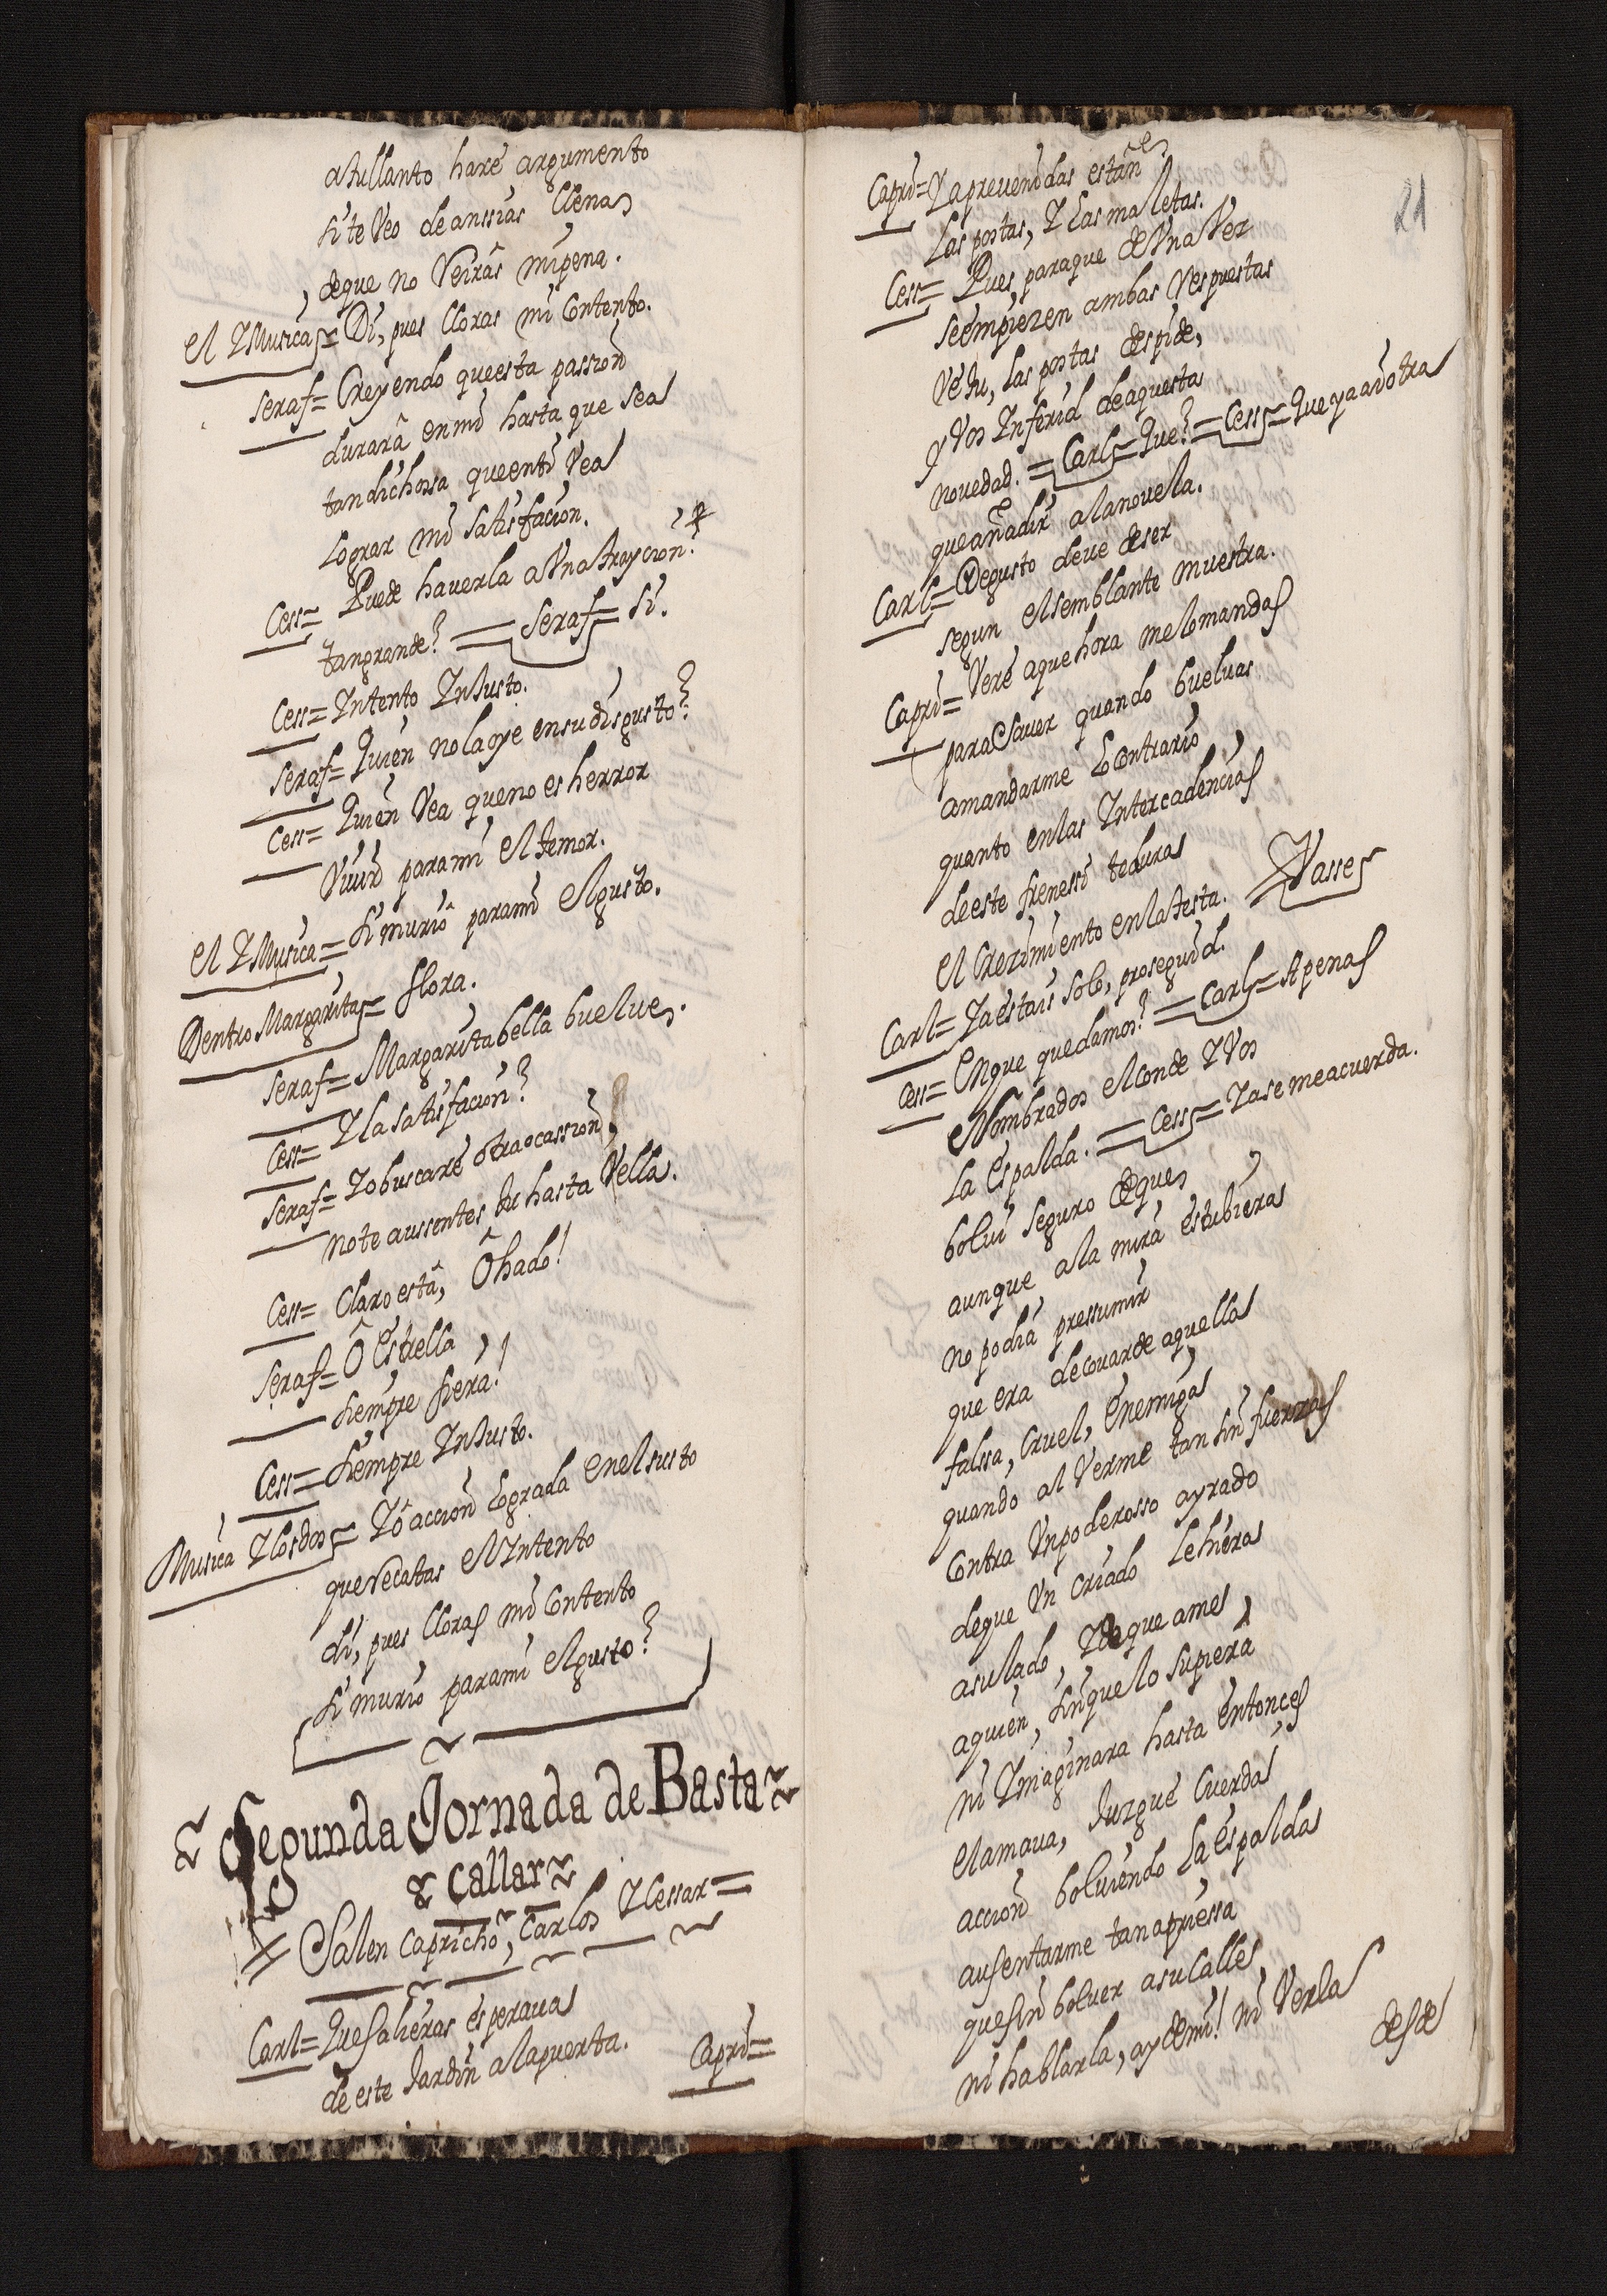 atullanto haré argumento
si te Veo de anssias llena
deque no Verràs mi pena.
el Y Musica = Di, pues lloras mi Contento.
Seraf = Creyendo que esta passion
durarâ en mi hasta que sea
tan dichossa que en ti Vea
lograr mi satisfacion.
Cess = Puede hauerla a Vna trayçion
tan grande? = Seraf = Si.
Cess = Intento InJusto.
Seraf = Quien no la oye en su disgusto?
Cess = Quien Vea que no es herror
Viuir para mi el temor.
el Y Musica = Si murió para mi el gusto.
Dentro Margarita = flora.
Seraf = Margarita bella buelue.
Cess = Y la satisfacion?
Seraf = Yo buscaré otra ocassion,
no te aussentes tu hasta Vella.
Cess = Claro està, Ô hado!
Seraf = Ô Estrella
siempre fiera!
Cess = Siempre InJusto.
Musica Y los dos = Yô acción lograda en el susto
que recatas el Intento
di, pues lloras mi Contento
si murió para mi el gusto?
Segunda Jornada de Basta
Callar
= Salen Capricho, Carlos Y Cessar =
Carl = Que salieras esperaua
de este Jardin a la puerta.
Capri =
21
Capri = Ya preuenidas están
las postas, Y las maletas.
Cess = Pues para que de Vna Vez
se empiezen ambas respuestas
Ve tu, las postas despide,
y Vos Inferid de aquesta
nouedad. = Carl = Que? = Cess = Que ya ay otra
que añadir a la nouela.
Carl = De gusto deue de ser
segun el semblante muestra.
Capri = Veré a que hora me lo mandas
para sauer quando bueluas
a mandarme lo contrario,
quanto en las Intercadencias
de este frenessi te dura
el Crezimiento en la testa. Vasse
Carl = Ya estais solo, proseguid.
Cess = En que quedamos? = Carl = Apenas
Nombrados el Conde Y Vos
la Espalda. = Cess = Ya se me acuerda.
bolui seguro de que
aunque a la mira estubiera
no podia pressumir
que era de couarde aquella
falssa, Cruel, Enemiga
quando al Verme tan sin fuerzas
Contra Vn poderosso ayrado
de que Vn criado le hiera
a su lado, Y de que ame
a quien, sin que lo supiera
ni Imaginara hasta entonces
el amaua, Juzgué Cuerda
accion boluiendo la espalda
ausentarme tan apriessa
que sin boluer a su Calle
ni hablarla, ay de mi! ni Verla
desde